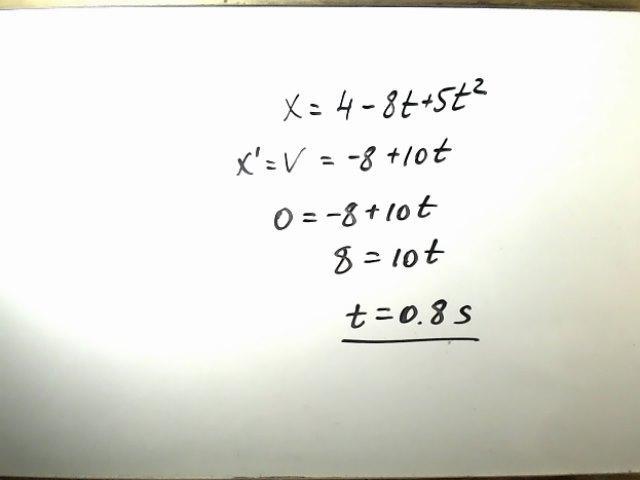 x = 4 - 8t + 5t²
x' = v = -8 + 10t
0 = -8 + 10t
8 = 10t
t = 0.8 s